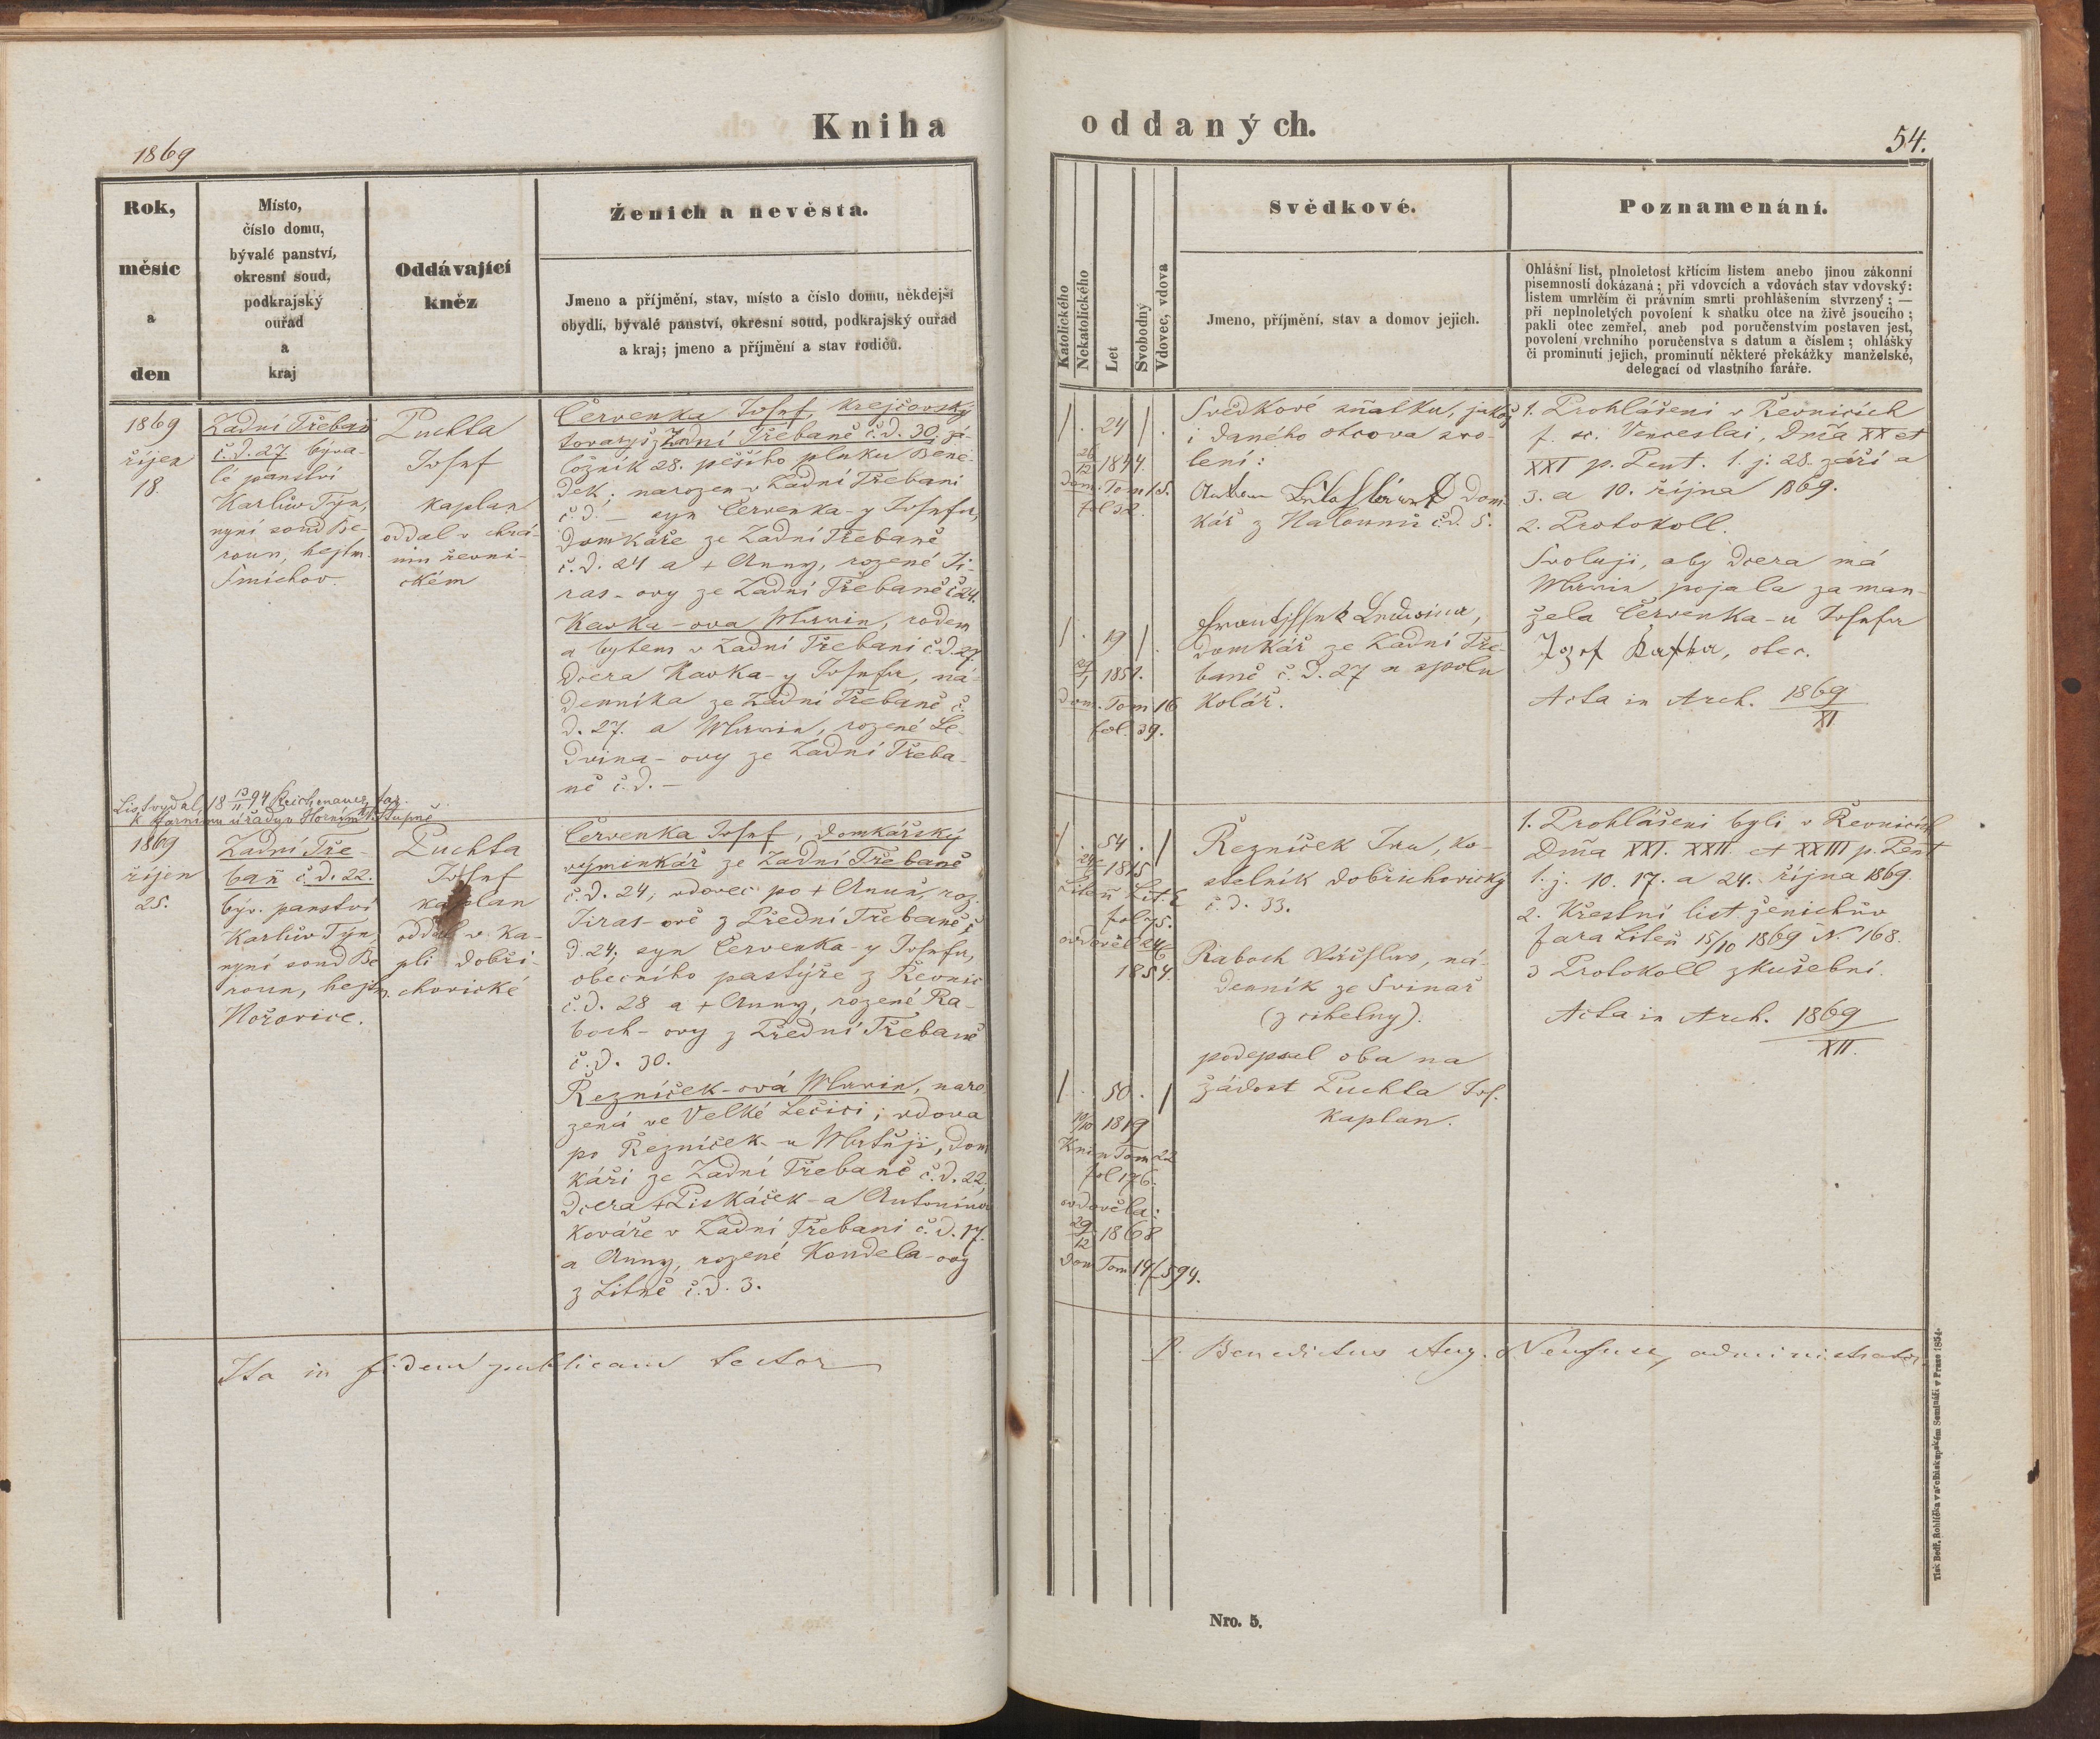 Kniha
oddaných.
1869
54.
Rok,
měsíc
a
den
Místo,
číslo domu,
bývalé panství,
okresní soud,
podkrajský
ouřad
a
kraj
Oddávající
kněz
Ženich a nevěsta.
Jmeno a příjmění, stav, místo a číslo domu, někdejší
obydlí, bývalé panství, okresní soud, podkrajský ouřad
a kraj; jmeno a příjmění a stav rodičů.
Katolického
Nekatolického
Let
Svobodný
Vdovec, vdova
Svědkové.
Jmeno, příjmění, stav a domov jejich.
Poznamenání.
Ohlášní list, plnoletost křtícím listem anebo jinou zákonní
písemností dokázaná; při vdovcích a vdovách stav vdovský:
listem umrlčím či právním smrti prohlášením stvrzený; —
při neplnoletých povolení k sňatku otce na živě jsoucího;
pakli otec zemřel, aneb pod poručenstvím postaven jest,
povolení vrchního poručenstva s datum a číslem; ohlášky
či prominutí jejich, prominutí některé překážky manželské,
delegací od vlastního faráře.
1869
říjen
18.
Zadní Třebaň
č.d. 27 býva-
lé panství
Karlův Týn,
nyní soud Be-
roun, hejtm.
Smíchov.
Puchta
Josef
kaplan
oddal v chrá-
mu řevni-
ckém
Červenka Josef, krejčovský
tovaryš z Zadní Třebaně č.d. 30, zá-
ložník 28. pěšího pluku Bene-
dek; narozen v Zadní Třebani
č.d. — syn Červenka-y Josefa,
domkáře ze Zadní Třebaně
č.d. 24 a + Anny, rozené Ji-
ras-ovy ze Zadní Třebaně č 24.
Kavka-ova Marie, rodem
a bytem v Zadní Třebani č.d. 27.
dcera Kavka-y Josefa, ná-
denníka ze Zadní Třebaně č.
d. 27. a Marie, rozené Le-
dvina-ovy ze Zadní Třeba-
ně č.d. —
/ . 24 / .
26/12 1844.
dom. Tom 15.
fol 32.
/ . 19 / .
29/1 1851.
dom. Tom 16
fol. 39.
Svědkové sňatku, jakož
i daného otcova svo-
lení:
dom-
kář z Halouně č.d. 5.
Ledvina,
domkář ze Zadní Tře-
baně č.d. 27 a spolu
kolář.
1. Prohlášeni v Řevnicích
f. sc. Venceslai, Dnĩa XX et
XXI p. Pent. t. j. 28. září a
3. a 10. října 1869.
2. Protokoll.
Svoluji, aby dcera má
Marie pojala za man-
žela Červenka-u Josefa
Jozef Kafka, otec.
Acta in Arch. 1869/XI
List vydal 18 13/11 94 Reichenauer, far.
k hornímu úřadu v Horním
1869
říjen
25.
Zadní Tře-
baň č.d. 22.
býv. panství
Karlův Týn
nyní soud Be
roun, hejtm.
Hořovice.
Puchta
Josef
kaplan
oddal v ka-
pli dobři-
chovické
Červenka Josef, domkářský
výminkář ze Zadní Třebaně
č.d. 24, vdovec po + Anně, roz.
Jiras-ově z Přední Třebaně č
d. 24; syn Červenka-y Josefa,
obecního pastýře z Řevnic
č.d. 28 a + Anny, rozené Ra-
boch-ovy z Přední Třebaně
č.d. 30.
Řezníček-ová Marie, naro-
zená ve Velké Lečici; vdova
po Řezníček-u Matěji, dom-
káři ze Zadní Třebaně č.d. 22,
dcera + Piskáček-a Antonína
kováře v Zadní Třebani č.d. 17.
a Anny, rozené Kondela-ovy
z Litně č.d. 3.
/ . 54 . /
1815
Liteň Lit. C
fol 75.
ovdověl 24/6
1854.
/ . 50 . /
19/10 1819
Knín Tom 22
fol 176.
ovdověla:
29/12 1868
Dom Tom 14/f 594.
Řezníček Jan, ko-
stelník dobřichovický
č.d. 33.
Raboch Václav, ná-
denník ze Svinař
(z cihelny).
podepsal oba na
žádost Puchta Jos.
kaplan.
1. Prohlášeni byli v Řevnicích
Dnĩa XXI. XXII. et XXIII p. Pent
t. j. 10. 17. a 24. října 1869.
2. Křestní list ženichův
fara Liteň 15/10 1869 N. 168.
3 Protokoll zkušební.
Acta in Arch. 1869/XII.
Ita in fidem publicam testor
P. Benedictus Aug. administrator.
Nro. 5.
Tisk Bedř. Rohlíčka v arcibiskupském Semináři v Praze 1854.